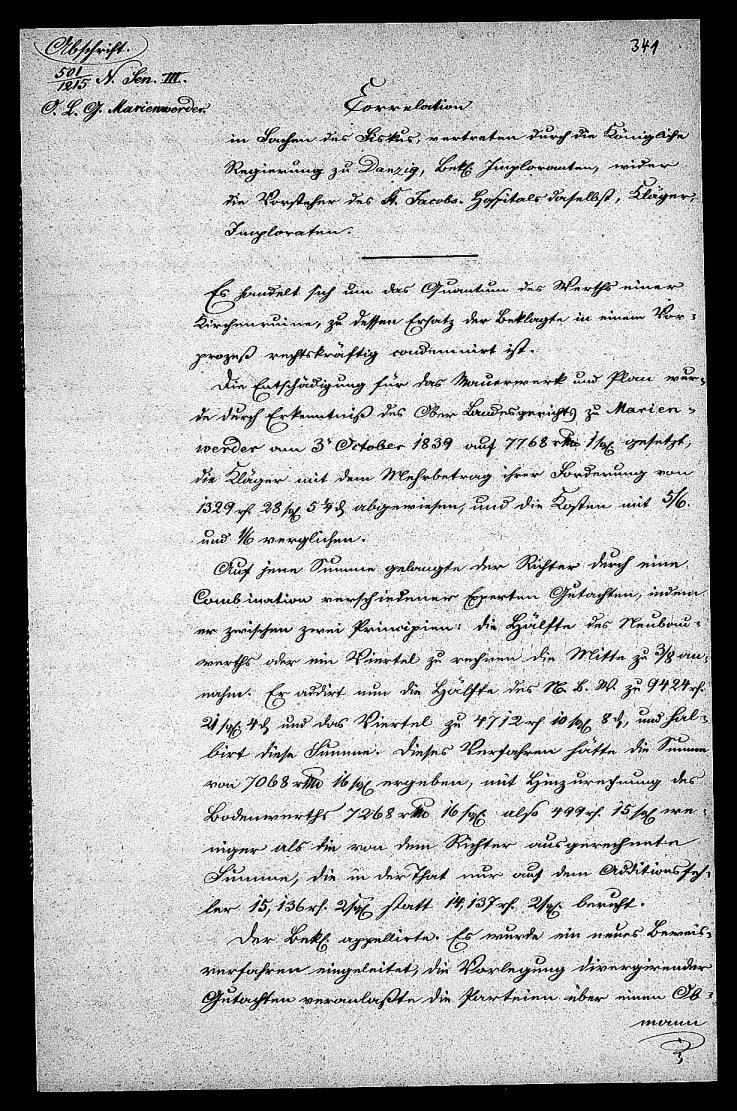 Abschrift.
341
501/1215 N. Sen. III.
O. L. G. Marienwerder.
Correlation
in Sachen des Fiskus, vertreten durch die Königliche
Regierung zu Danzig, Bekl. Imploranten, wider
die Vorsteher des St. Jacobs-Hospitals daselbst, Kläger,
Imploraten.
Es handelt sich um das Quantum des Werths einer
Kirchenruine, zu dessen Ersatz der Beklagte in einem Vor-
prozeß rechtskräftig condemnirt ist.
Die Entschädigung für das Mauerwerk und Plan wur-
de durch Erkenntniß des Ober Landesgerichts zu Marien-
werder am 3t October 1839 auf 7768 rtlr 1 sgr. gesetzt,
die Kläger mit dem Mehrbetrag ihrer Forderung von
1329 rf. 28 sgr 5 1/4 d, abgewiesen, und die Kosten mit 5/6.
und 1/6 verglichen.
Auf jene Summe gelangte der Richter durch eine
Combination verschiedener Experten Gutachten, indem
er zwischen zwei Principien: die Hälfte des Neubau-
werths oder ein Viertel zu rechnen die Mitte zu 3/8 an-
nahm. Er addirt nun die Hälfte des N. B. W. zu 9424 rf.
21 sgr. 4 d, und das Viertel zu 4712 rf 10 sgr 8 d, und hal-
birt diese Summe. Dieses Verfahren hätte die Summe
von 7068 rtlr 16 sgr ergeben, mit Hinzurechnung des
Bodenwerths 7268 rtlr 16 sgr. also 499 rf. 15 sgr we-
niger als die von dem Richter ausgerechnete
Summe, die in der That nur auf dem Additionsfeh-
ler 15,136 rf. 2 sgr statt 14,137 rf. 2 sgr. beruht.
Der Bekl. appellirte. Es wurde ein neues Beweis-
verfahren eingeleitet, die Vorlegung divergirender
Gutachten veranlaßte die Parteien über einen Ob-
mann